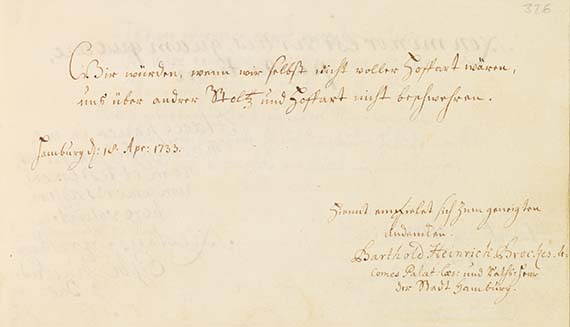 376
Wir würden, wenn wir selbst nicht voller Hoffart wären,
uns über andrer Stoltz und Hoffart nicht beschwehren.
Hamburg d: 18. Apr: 1733.
Hiemit empfielet sich zum geneigten
Andencken
Barthold Heinrich Brockes.
comes Palat. Cæs: und Rathsherr
der Stadt Hamburg.